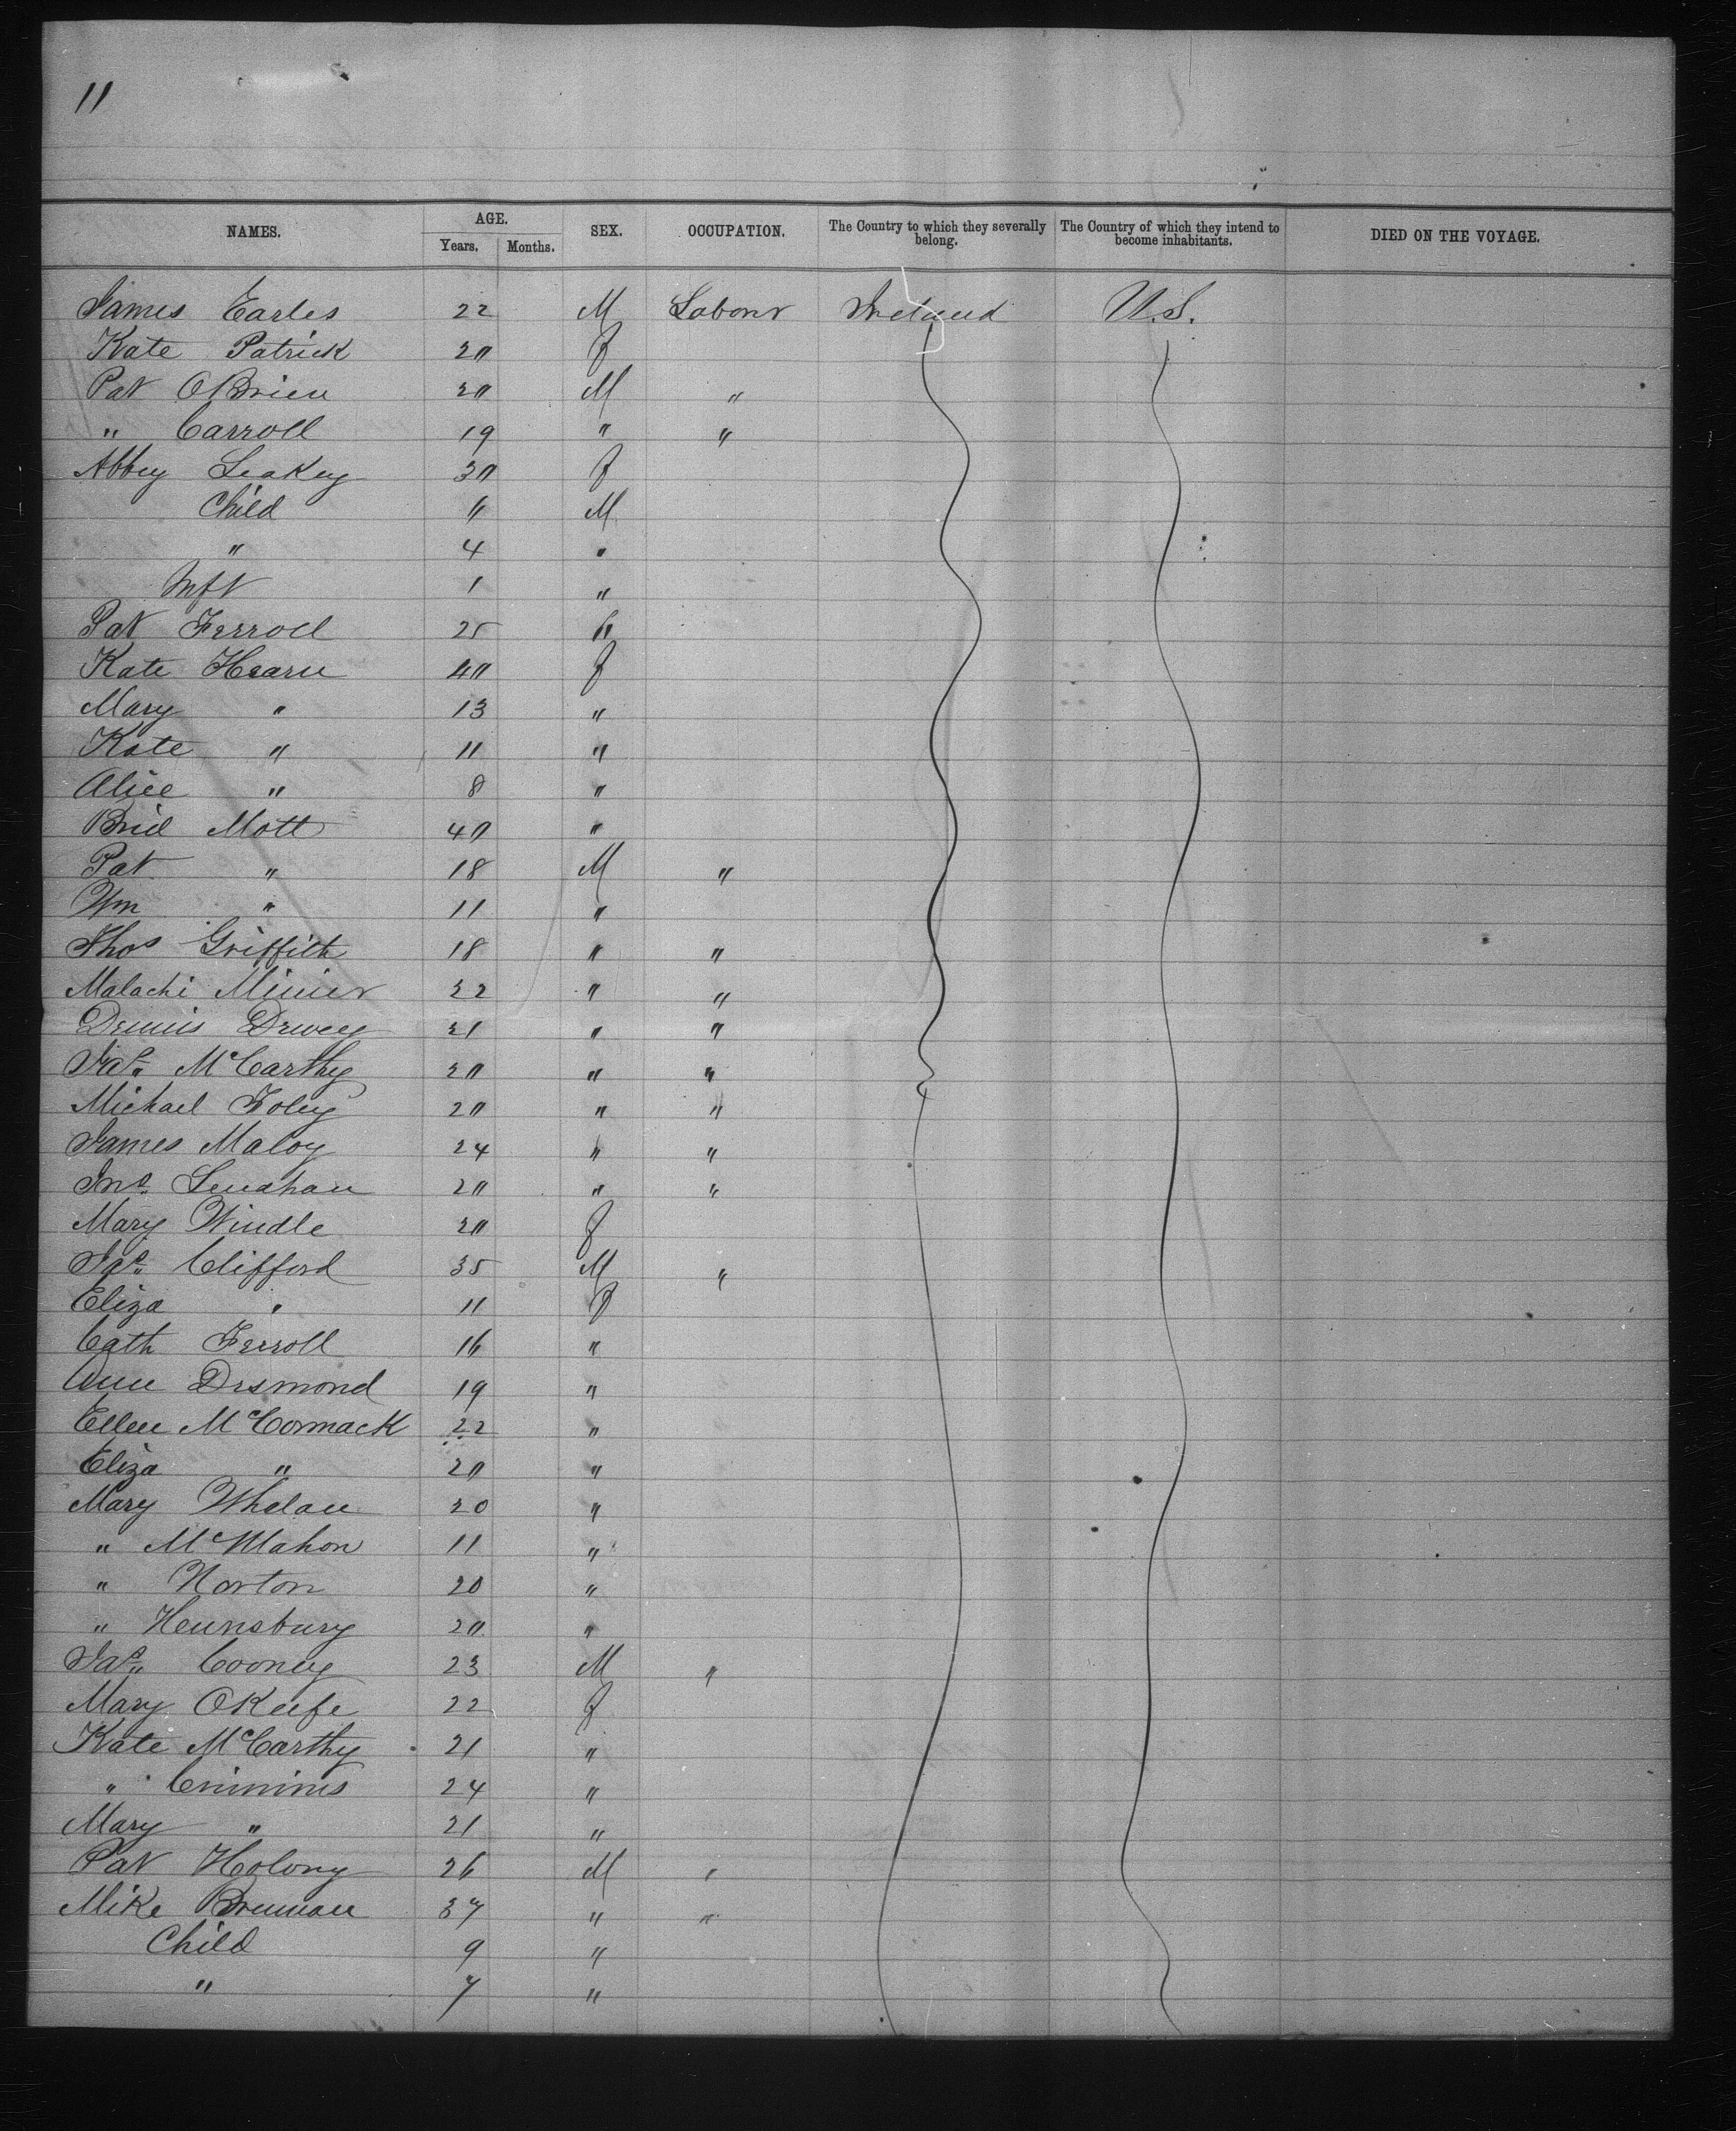 11
NAMES. AGE. Years. Months. SEX. OCCUPATION. The Country to which they severally belong. The Country of which they intend to become inhabitants. DIED ON THE VOYAGE.
James Earles 22 M Labour Ireland U.S.
Kate Patrick 20 f
Pat OBrien 20 M "
" Carroll 19 " "
Abbey Leakey 30 f
Child 6 M
" 4 "
Inft 1 "
Pat Ferroll 25 "
Kate Hearn 40 f
Mary " 13 "
Kate " 11 "
Alice " 8 "
Brid Mott 40 "
Pat " 18 M "
Wm " 11 "
Thos Griffith 18 " "
Malachi 22 " "
Dennis 21 " "
Jas McCarthy 20 " "
Michael Foley 20 " "
James Maloy 24 " "
Jno Lenahan 20 " "
Mary Windle 20 f
Jas Clifford 35 M "
Eliza " 11 f
Cath Ferroll 16 "
Ann Desmond 19 "
Ellen McCormack 22 "
Eliza " 20 "
Mary Whelan 20 "
" McMahon 11 "
" Norton 20 "
" Hennsbury 20 "
Jas Cooney 23 M "
Mary OKeefe 22 f
Kate McCarthy 21 "
" Crimmins 24 "
Mary " 21 "
Pat Holony 26 M "
Mike Brennan 37 " "
Child 9 "
" 7 "